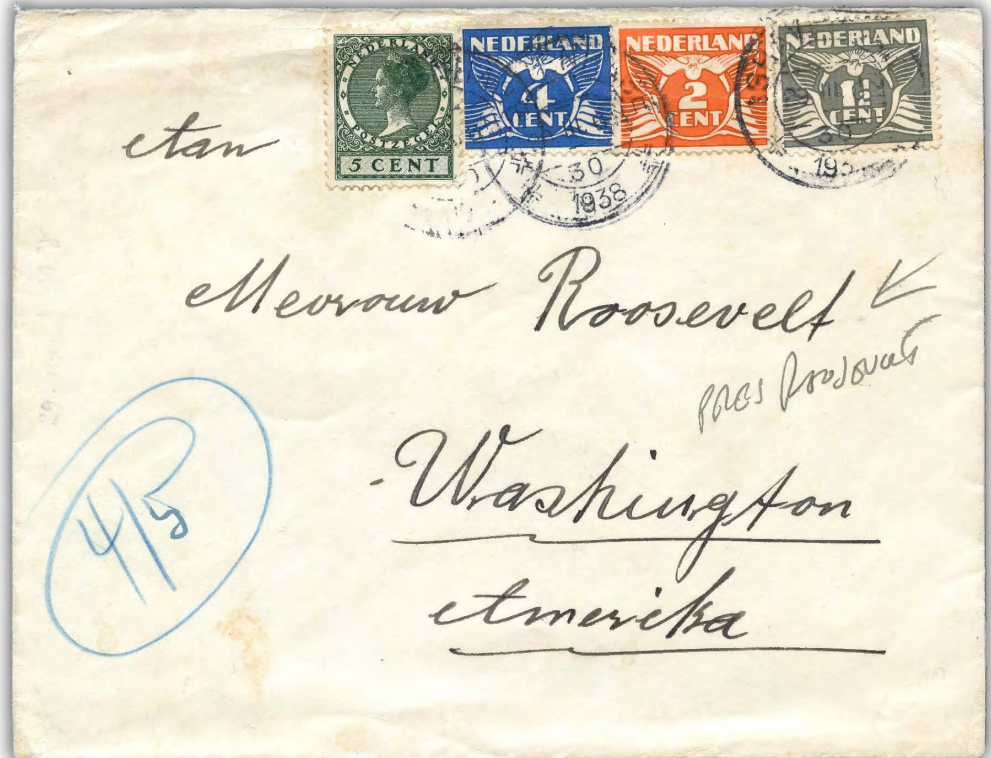 NEDERLAND
POSTZEGEL
5 CENT
NEDERLAND
4
CENT
NEDERLAND
2
CENT
NEDERLAND
1½
CENT
30
1938
30
193
Aan
Mevrouw Roosevelt
PRES Roosevelt
Washington
Amerika
4/5